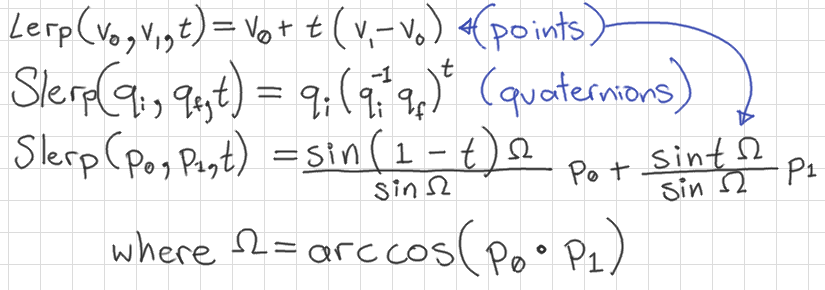 Lerp(v₀, v₁, t) = v₀ + t (v₁ − v₀) (points)
Slerp(qᵢ, q_f, t) = qᵢ (qᵢ⁻¹ q_f)ᵗ (quaternions)
Slerp(p₀, p₁, t) = sin(1 − t)Ω / sin Ω p₀ + sin t Ω / sin Ω p₁
where Ω = arccos(p₀ • p₁)